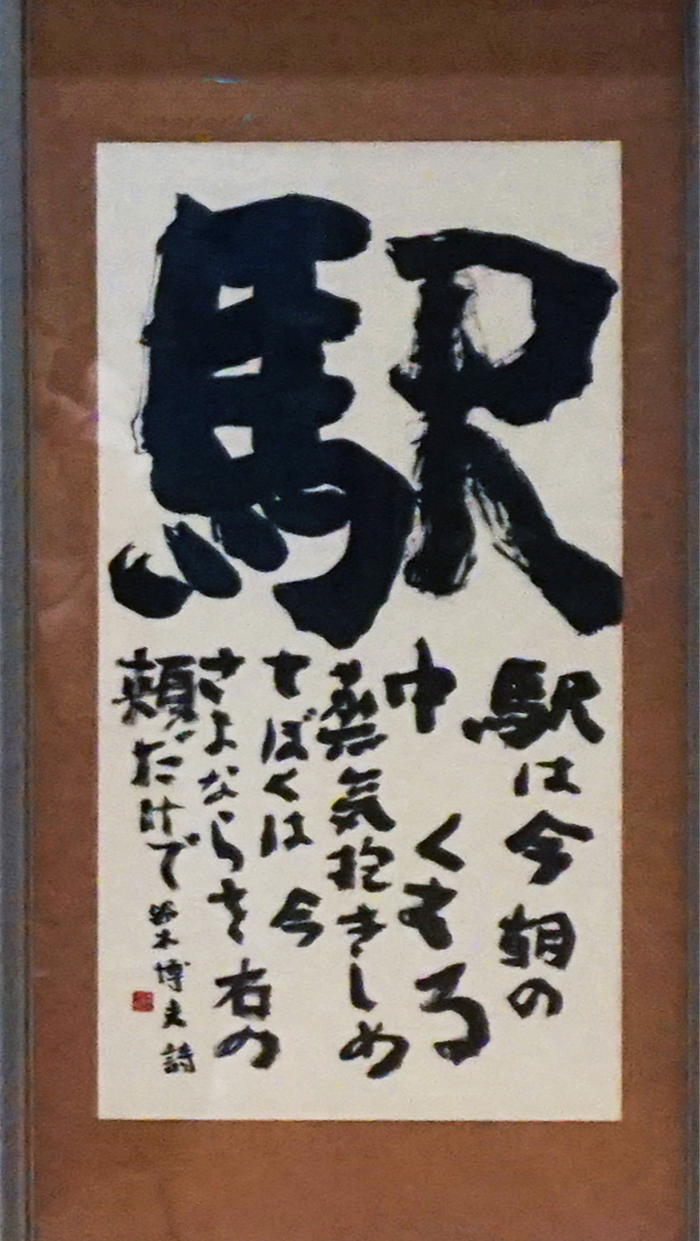 駅
駅は今朝の
中 くもる
蒸気抱きしめ
てぼくは 今
さよならを右の
頬だけで
木博夫 詩